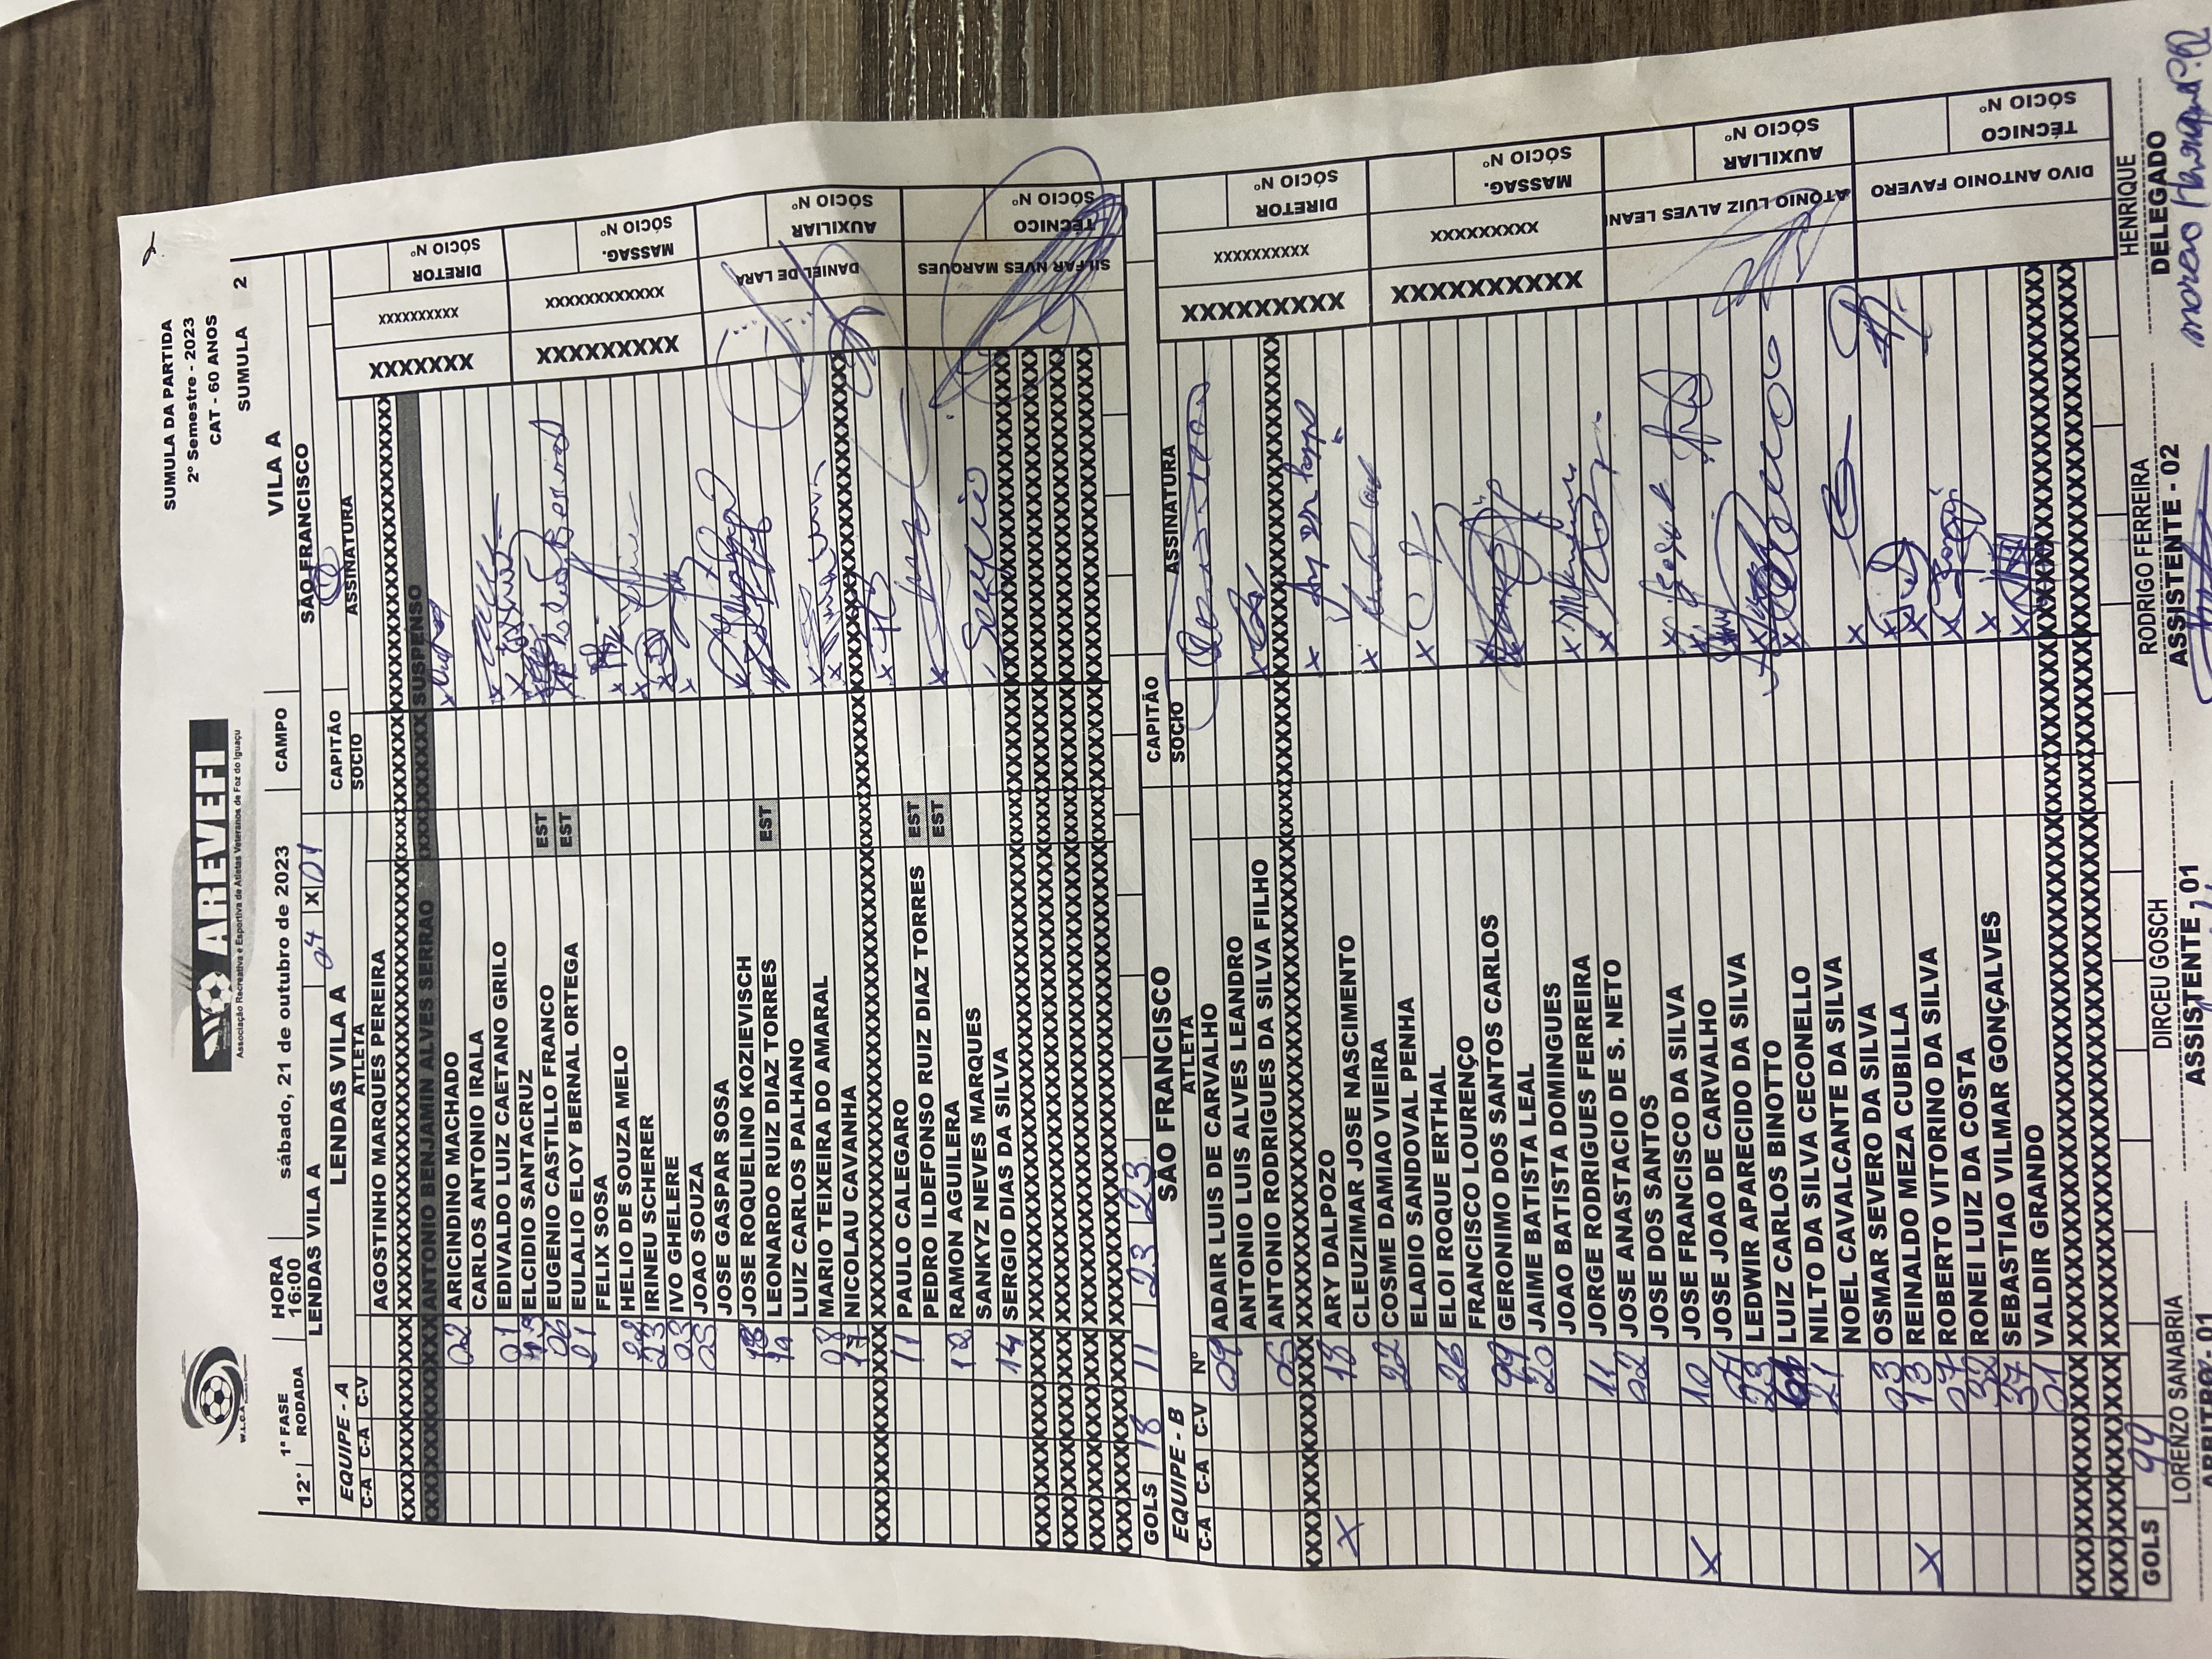 SUMULA DA PARTIDA
2º Semestre - 2023
CAT - 60 ANOS
SUMULA 2
W.L.C.A
AREVEFI
Associação Recreativa e Esportiva de Atletas Veteranos de Foz do Iguaçu
12ª 1ª FASE RODADA HORA 16:00 sábado, 21 de outubro de 2023 CAMPO VILA A
LENDAS VILA A 04 X 01 SÃO FRANCISCO
EQUIPE - A LENDAS VILA A CAPITÃO
C-A C-A C-V ATLETA SOCIO ASSINATURA
AGOSTINHO MARQUES PEREIRA
ANTONIO BENJAMIN ALVES SERRAO SUSPENSO
02 ARICINDINO MACHADO
CARLOS ANTONIO IRALA
01 EDIVALDO LUIZ CAETANO GRILO
ELCIDIO SANTACRUZ
06 EUGENIO CASTILLO FRANCO EST
21 EULALIO ELOY BERNAL ORTEGA EST
FELIX SOSA
HELIO DE SOUZA MELO
23 IRINEU SCHERER
03 IVO GHELERE
05 JOAO SOUZA
JOSE GASPAR SOSA
JOSE ROQUELINO KOZIEVISCH
LEONARDO RUIZ DIAZ TORRES EST
LUIZ CARLOS PALHANO
MARIO TEIXEIRA DO AMARAL
NICOLAU CAVANHA
11 PAULO CALEGARO
PEDRO ILDEFONSO RUIZ DIAZ TORRES EST
18 RAMON AGUILERA EST
SANKYZ NEVES MARQUES
14 SERGIO DIAS DA SILVA
GOLS 18 11 23 23
XXXXXXX XXXXXXXXXX DIRETOR SÓCIO Nº
XXXXXXXXX XXXXXXXXXXXX MASSAG. SÓCIO Nº
DANIEL DE LARA AUXILIAR SÓCIO Nº
SILFAR NVES MARQUES TÉCNICO SÓCIO Nº
EQUIPE - B SÃO FRANCISCO CAPITÃO
C-A C-A C-V Nº ATLETA SOCIO ASSINATURA
09 ADAIR LUIS DE CARVALHO
ANTONIO LUIS ALVES LEANDRO
05 ANTONIO RODRIGUES DA SILVA FILHO
X 18 ARY DALPOZO
CLEUZIMAR JOSE NASCIMENTO
22 COSME DAMIAO VIEIRA
ELADIO SANDOVAL PENHA
26 ELOI ROQUE ERTHAL
FRANCISCO LOURENÇO
99 GERONIMO DOS SANTOS CARLOS
20 JAIME BATISTA LEAL
JOAO BATISTA DOMINGUES
11 JORGE RODRIGUES FERREIRA
02 JOSE ANASTACIO DE S. NETO
JOSE DOS SANTOS
X 10 JOSE FRANCISCO DA SILVA
JOSE JOAO DE CARVALHO
23 LEDWIR APARECIDO DA SILVA
LUIZ CARLOS BINOTTO
21 NILTO DA SILVA CECONELLO
NOEL CAVALCANTE DA SILVA
03 OSMAR SEVERO DA SILVA
X 13 REINALDO MEZA CUBILLA
07 ROBERTO VITORINO DA SILVA
32 RONEI LUIZ DA COSTA
37 SEBASTIAO VILMAR GONÇALVES
01 VALDIR GRANDO
GOLS 99
XXXXXXXXXX XXXXXXXXXX DIRETOR SÓCIO Nº
XXXXXXXXXXX XXXXXXXXXX MASSAG. SÓCIO Nº
ATONIO LUIZ ALVES LEAN AUXILIAR SÓCIO Nº
DIVO ANTONIO FAVERO TÉCNICO SÓCIO Nº
LORENZO SANABRIA DIRCEU GOSCH RODRIGO FERREIRA HENRIQUE
ARBITRO- 01 ASSISTENTE , 01 ASSISTENTE - 02 DELEGADO